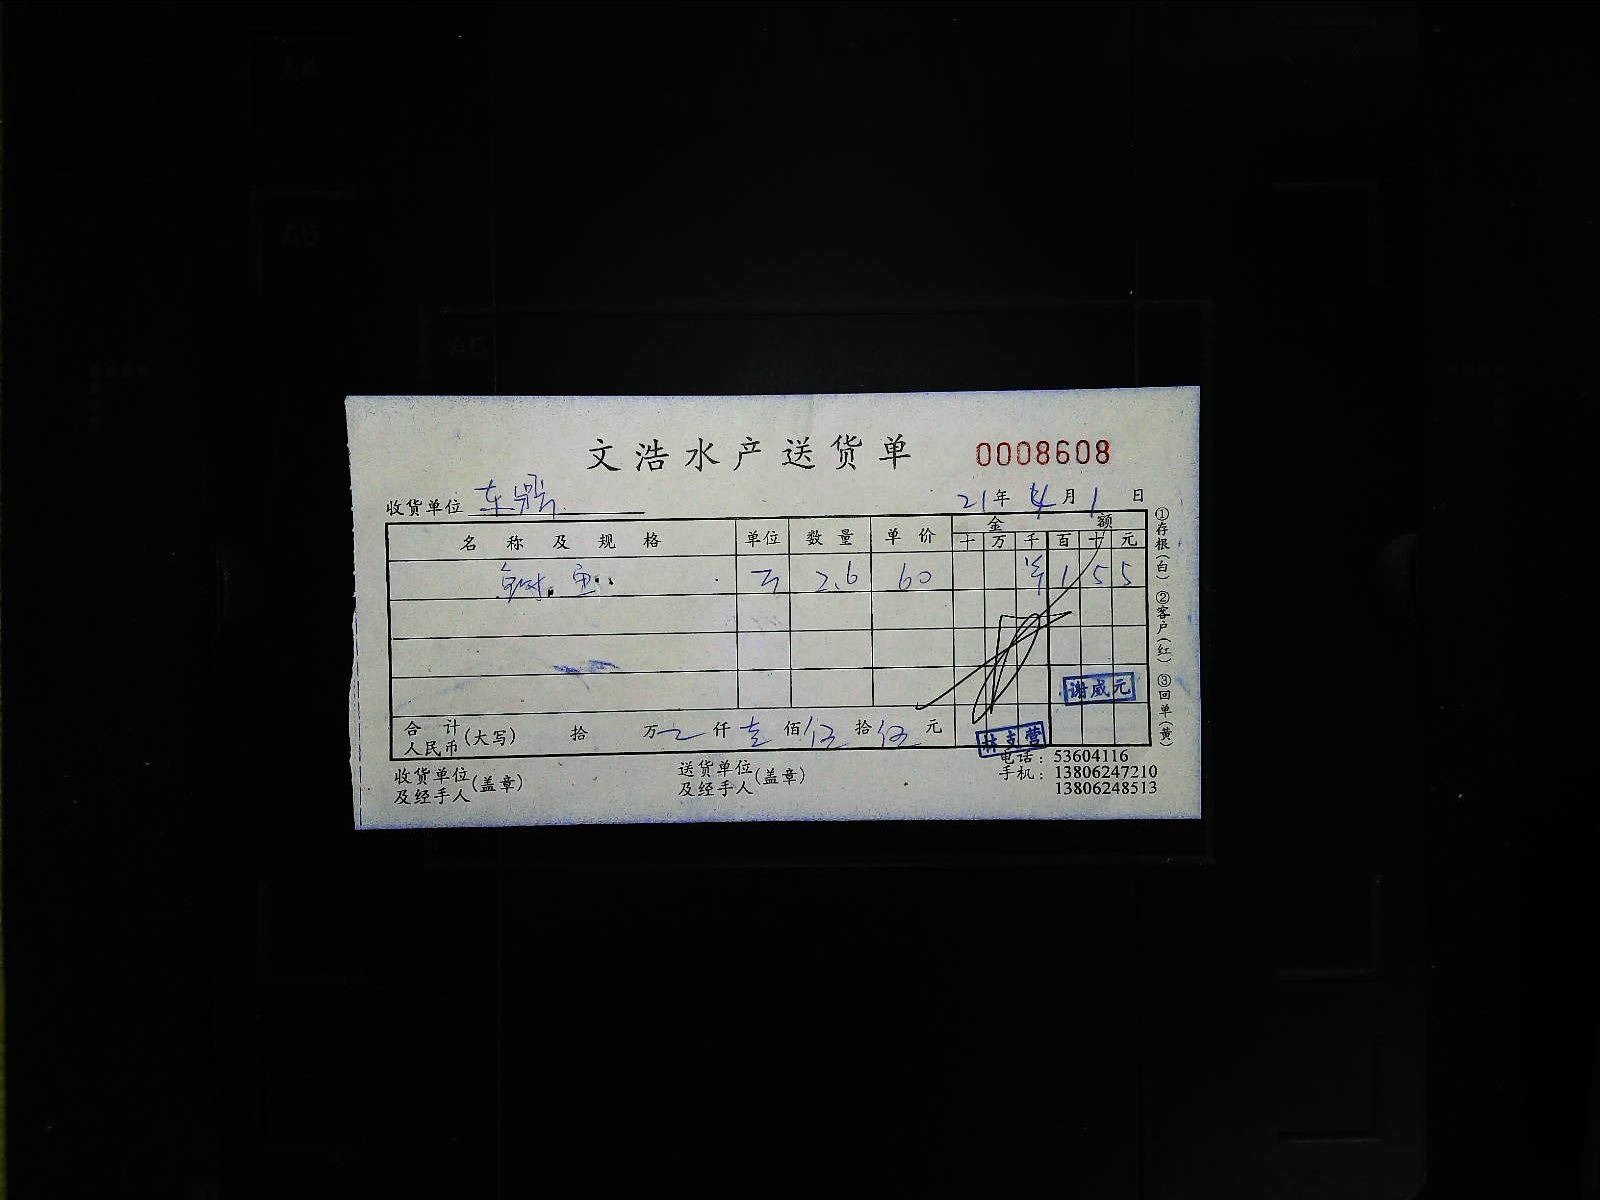 文浩水产送货单 0008608
收货单位 东 21年4月1日
名称及规格 单位 数量 单价 金额
十 万 千 百 十 元
鱼 2.6 60 ¥ 1 5 5
合计人民币(大写) 拾 万 仟 壹 佰 伍 拾 伍 元
谢威元
林支营
收货单位及经手人(盖章) 送货单位及经手人(盖章)
电话：53604116
手机：13806247210
13806248513
①存根(白) ②客户(红) ③回单(黄)
A5
A6